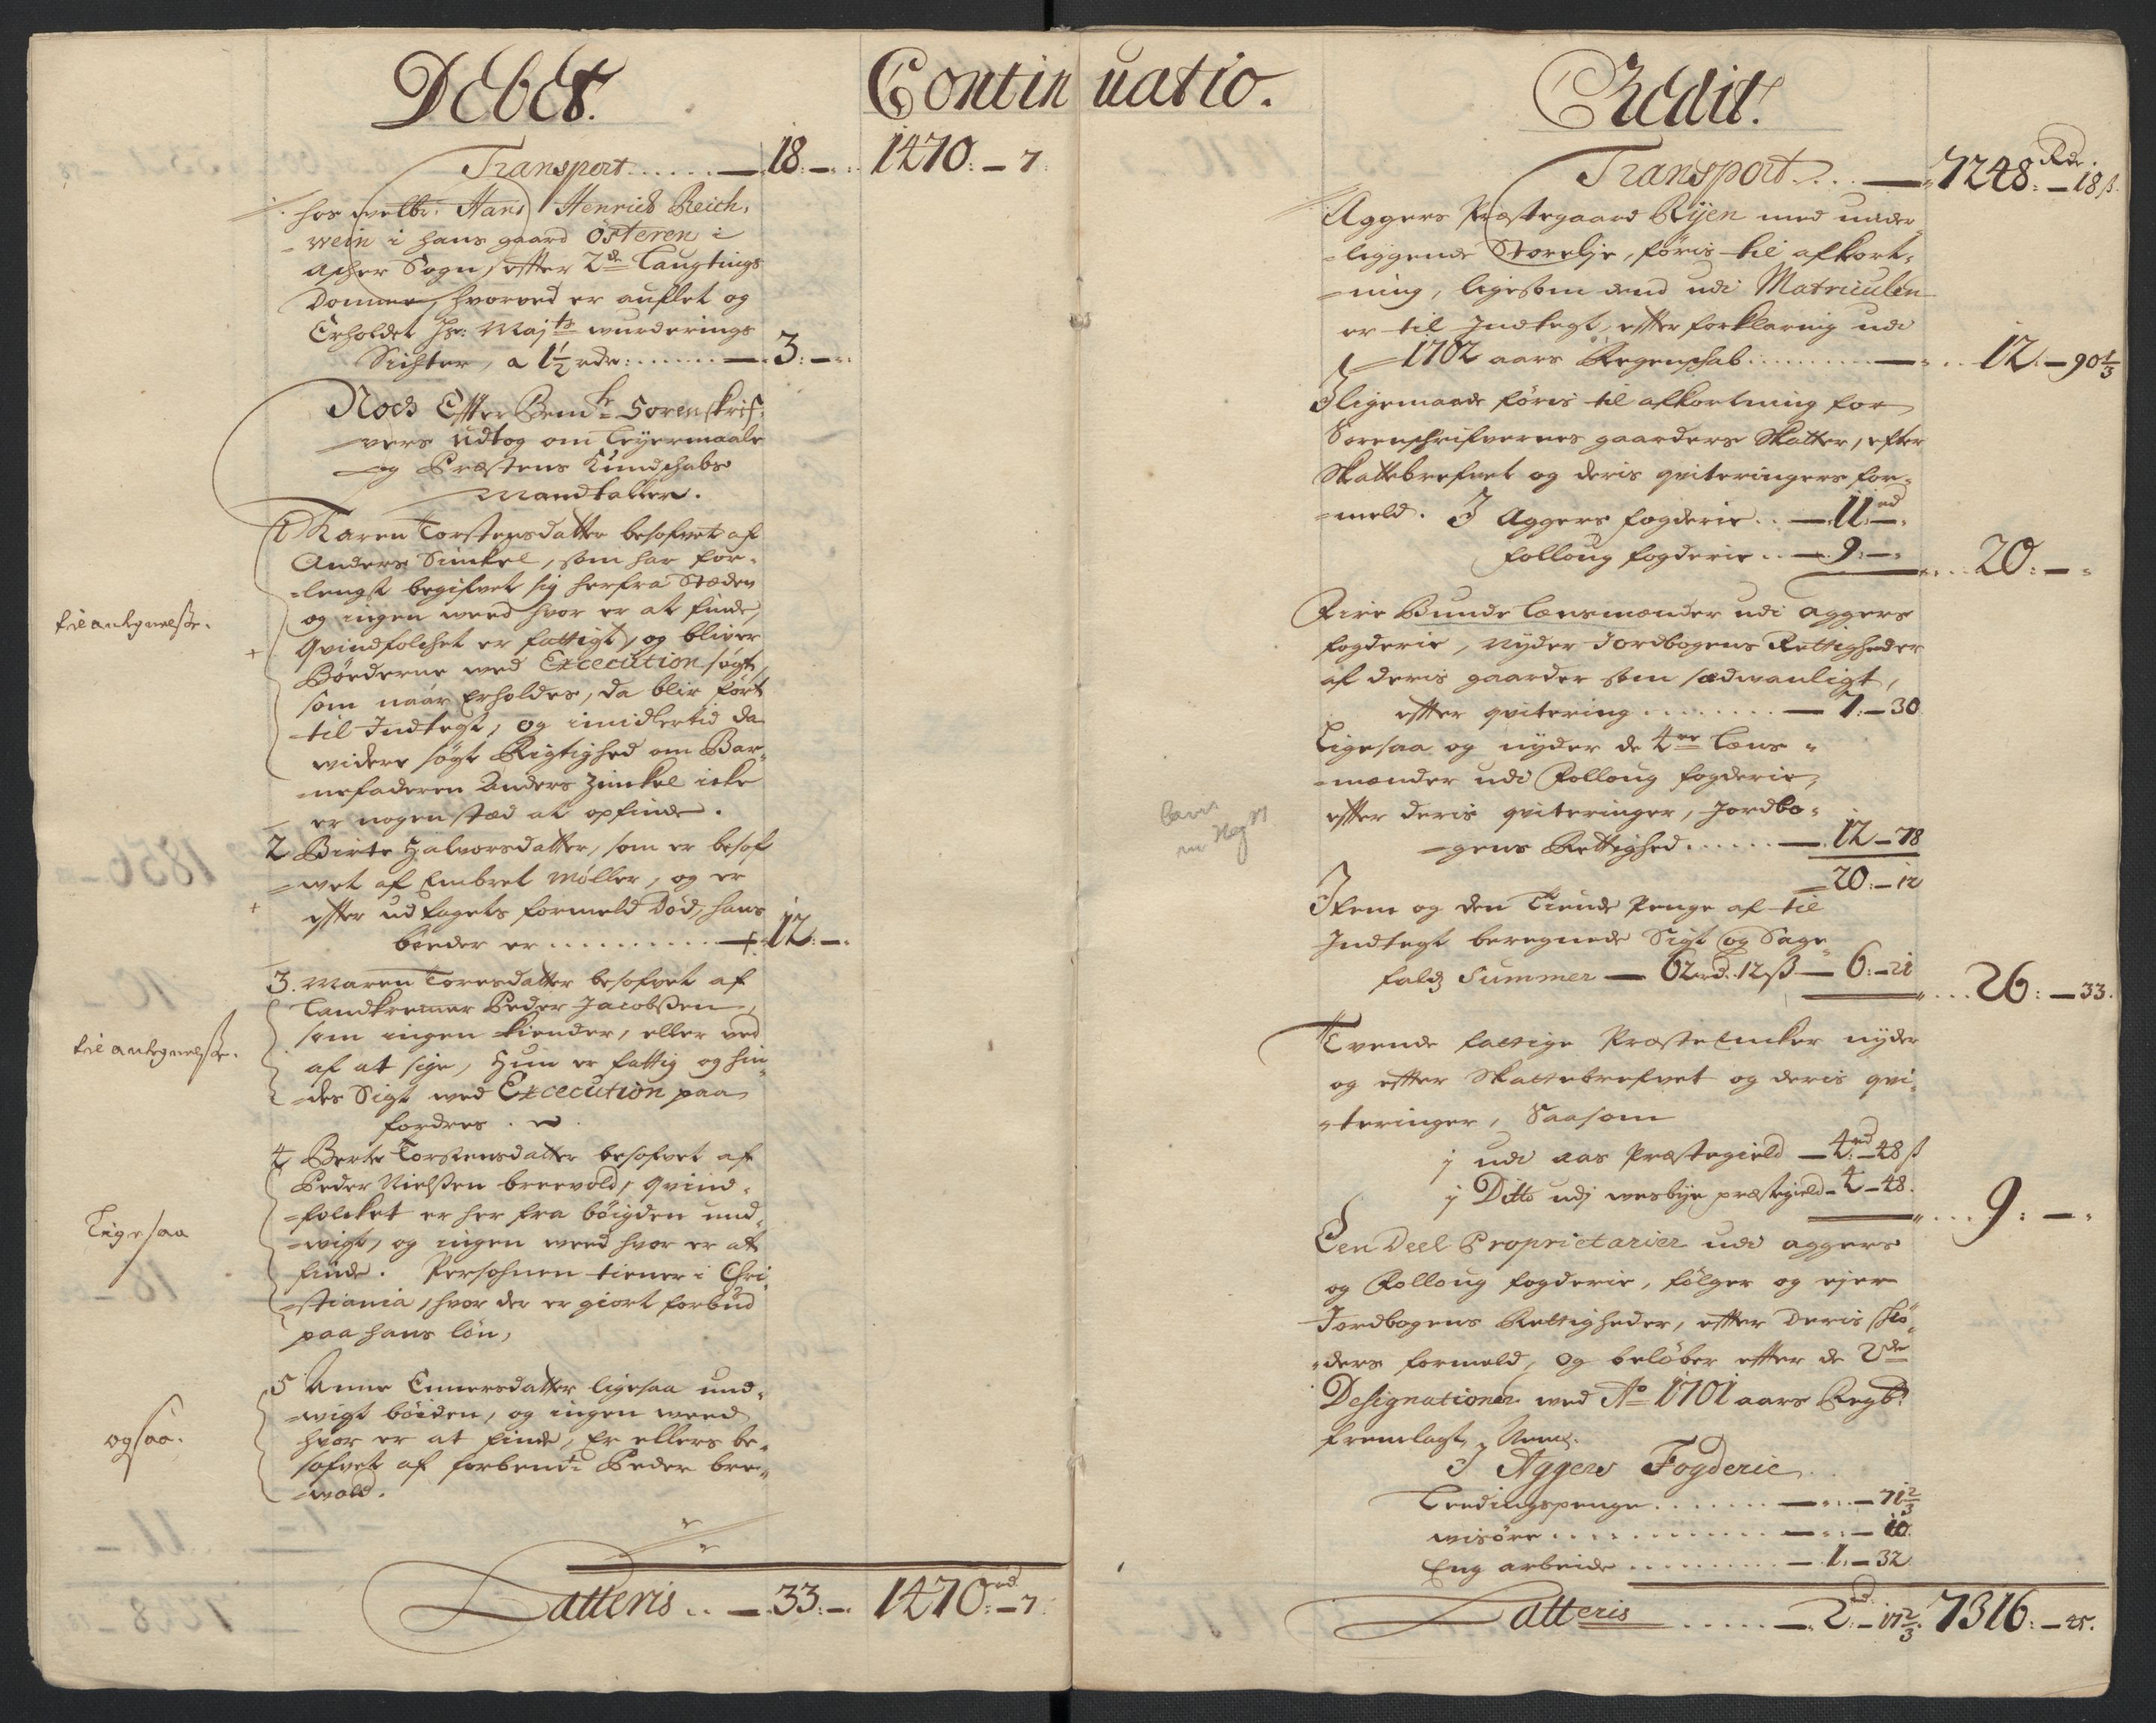 Debet.
Continuatio.
Transport ...... — 18. — .. 1470. — 7.
hos welb: Hans Henrich Reich,
-wein i hans gaard Østeren i
Ascher Sogn, effter 2de Laugtings
Domme, hvorved er auflet og
Erholdet Hs: Majts wurderings
Sichter, a 1½ rdr: ...... — 3: — ..
Noch Effter Bemte Sorenskrif-
-vers udtog om Leyermaale
-og Præstens Kundschabs
Mandtaller.
1 Karen Torstensdatter besofvet af
Anders Sinckel, som har for-
-lengst begifvet sig herfra Stæden
og ingen weed hvor er at finde,
til antegnelsse.
+
Qvindfolchet er fattigt, og bliver
Bøederne med Excecution søgt,
som naar Erholdes, da blir ført
til Indtegt, og imidlertid da
widere søgt Rigtighed om Bar-
-nefaderen Anders Zinckel icke
er nogen stæd at opfinde.
2 Birte Halvorsdatter, som er besof
-wet af Embret Møller, og er
+
effter udtagets formeld Død, hans
bøeder er ......... — 12: — .
3. Maren Toresdatter besofvet af
Landkremer Peder Jacobssen,
som ingen kiender, eller ved
til antegnelsse.
af at sige, Hun er fattig og hin-
-des Sigt med Excecution paa
fordres.
4 Berte Torstensdatter besofvet af
Peder Nielssen breevold, qvind-
-folcket er her fra bøigden und-
Ligesaa
-wigt, og ingen weed hvor er at
finde. Persohnen tiener i Chri-
-stiania, hvor der er giort forbud
paa hans løn,
5 Anne Ennersdatter ligesaa und-
-wigt bøiden, og ingen weed
ogsaa.
hvor er at finde, Er ellers be-
sofvet af forbemte Peder bree-
-wold.
Latteris .. — 33: — . 1470rd: — 7.
Credit.
Transport .. — 7248: Rdr. — 18 ß.
Aggers Præstegaard Ryen med under-
-liggende Storelje, føris til afkort-
-ning, ligesom dend udi Matriculen
er til Indtegt, effter forklaring udi
1702 aars Regenschab ......... — .. 12. — 90⅓
Iligemaade føris til afkortning for
Sorenschrifvernes gaarders Skatter, efter
Skattebrefvet og deris qviteringers for-
-meld. I Aggers fogderie .. — 11rd — .
Folloug fogderie .. — 9: — . .. 20: — .
Fire Bunde Lænsmænder udi Aggers
fogderie, nyder Jordbogens Rettigheder
af deris gaarder som sædwanligt,
effter qvitering ........ — 7. — 30
Ligesaa og nyder de 4re Læns-
-mænder udi Folloug fogderie,
effter deris qviteringer, Jordbo-
-gens Rettighed ...... — 12 — 78
— 20: — 12
Item og den Tiende Penge af til
Indtegt beregnede Sigt og Sage-
fald Summer — 62 rd. 12 ß — 6: — 21 ... 26: — 33.
Tvende fattige Præste Enker nyder
og effter Skattebrefvet og deris qvi-
-teringer, Saasom
j udi Aas Præstegield — 4rd — 48 ß
j Ditto udj wesbye præstegield — 4 — 48. ... 9: — .
Een Deel Proprietarier udi Aggers
og Folloug fogderie, følger og ejer
Jordbogens Rettigheder, effter Deris skiø-
-ders formeld, og beløber effter de 2de
Designationer med Ao 1701 aars Regb:
fremlagt, Neml.
I Aggers Fogderie
Leedingspenge ....... — .. — 71⅔
wisøre ......... — .. — 10.
Eng arbeide ......... — 1. — 32.
Latteris ..... — 2rd. — 17⅔. 7316: — 45.